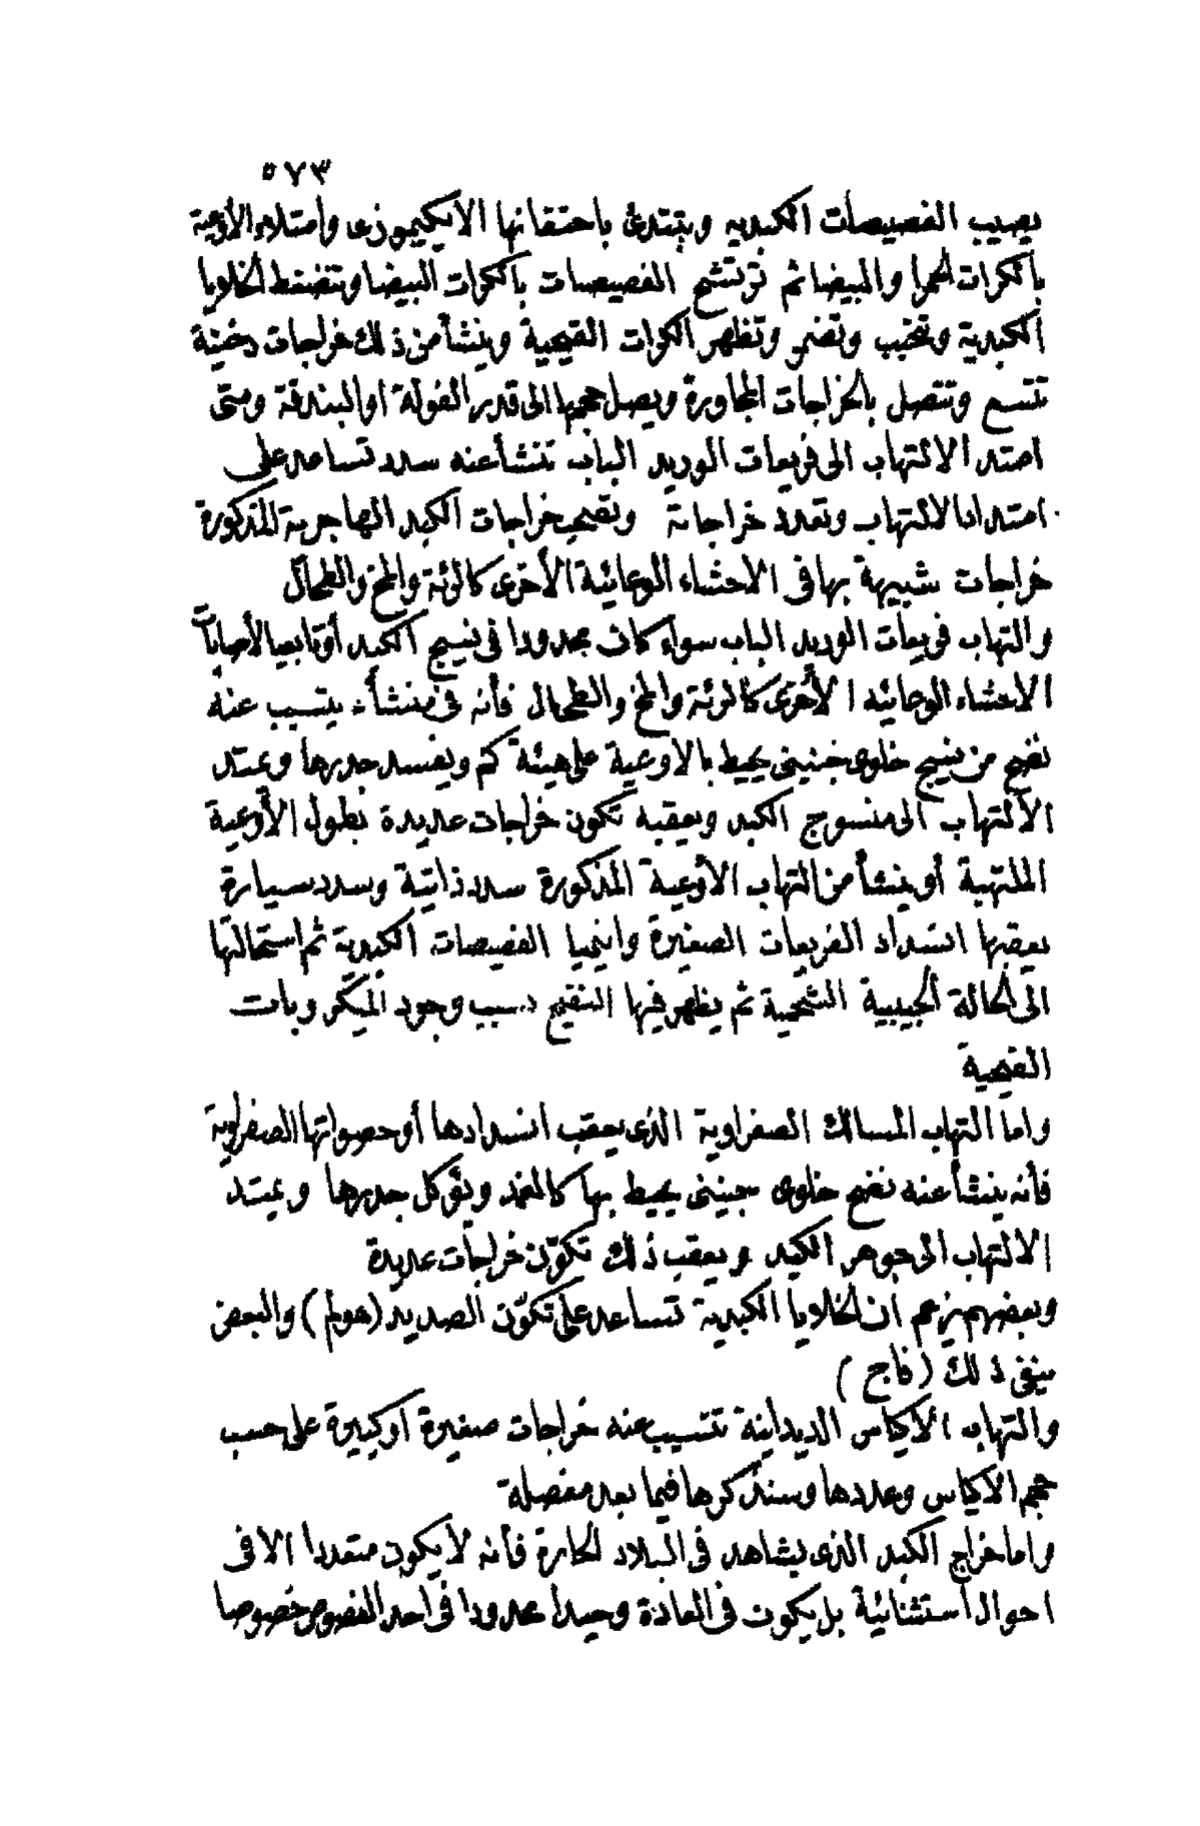 ٥٧٣
يصيب الفصيصات الكبديه ويبتدئ باحتقانها الايكيموزى وامتلاء الأوعية
بالكرات الحمرا والبيضا ثم ترتشح الفصيصات بالكرات البيضا وتنضغط الخلايا
الكبدية وتحتبب وتضمر وتظهر الكرات القيحية وينشأ من ذلك خراجات دخنية
تتسع وتتصل بالخراجات المجاورة ويصل حجمها الى قدر الفولة او البندقة ومتى
امتد الالتهاب الى فريعات الوريد الباب تنشأ عنه سدد تساعد على
امتداد الالتهاب وتعدد خراجاتة وتصحب خراجات الكبد المهاجرية المذكورة
خراجات شبيهة بها فى الاحشاء الوعائية الأخرى كالرئة والمخ والطحال
والتهاب فريعات الوريد الباب سواء كان محدودا فى نسيج الكبد أو تابعيا لأصابات
الاحشاء الوعائيه الأخرى كالرئة والمخ والطحال فأنه فى منشأء يتسبب عنه
نضح من نسيج خلوى جنينى يحيط بالاوعية على هيئة كم ويفسد جدرها ويمتد
الألتهاب الى منسوج الكبد ويعقبه تكون خراجات عديدة بطول الأوعية
الملتهبة أو ينشأ من التهاب الأوعية المذكورة سدد ذاتية وسدد سيارة
يعقبها انسداد الفريعات الصغيرة وانيميا الفصيصات الكبدية ثم استحالتها
الى الحالة الحبيبية الشحمية ثم يظهر فيها التقيح بسبب وجود الميكروبات
القيحية
واما التهاب المسالك الصفراوية الذى يعقب انسدادها أو حصواتها الصفراوية
فأنه ينشأ عنه نضح خلوى جنينى يحيط بها كالغمد ويؤكل جدرها ويمتد
الالتهاب الى جوهر الكبد ويعقب ذلك تكوّن خراجات عديدة
وبعضهم يزعم ان الخلايا الكبدية تساعد على تكوّن الصديد (هولم) والبعض
ينفى ذلك (فاج)
والتهاب الاكياس الديدانية تتسبب عنه خراجات صغيرة او كبيرة على حسب
حجم الاكياس وعددها وسنذكرها فيما بعد مفصلة
واما خراج الكبد الذى يشاهد فى البلاد الحارة فأنه لا يكون متعددا الا فى
احوال استثنائية بل يكون فى العادة وحيدا محدودا فى احد الفصوص خصوصا